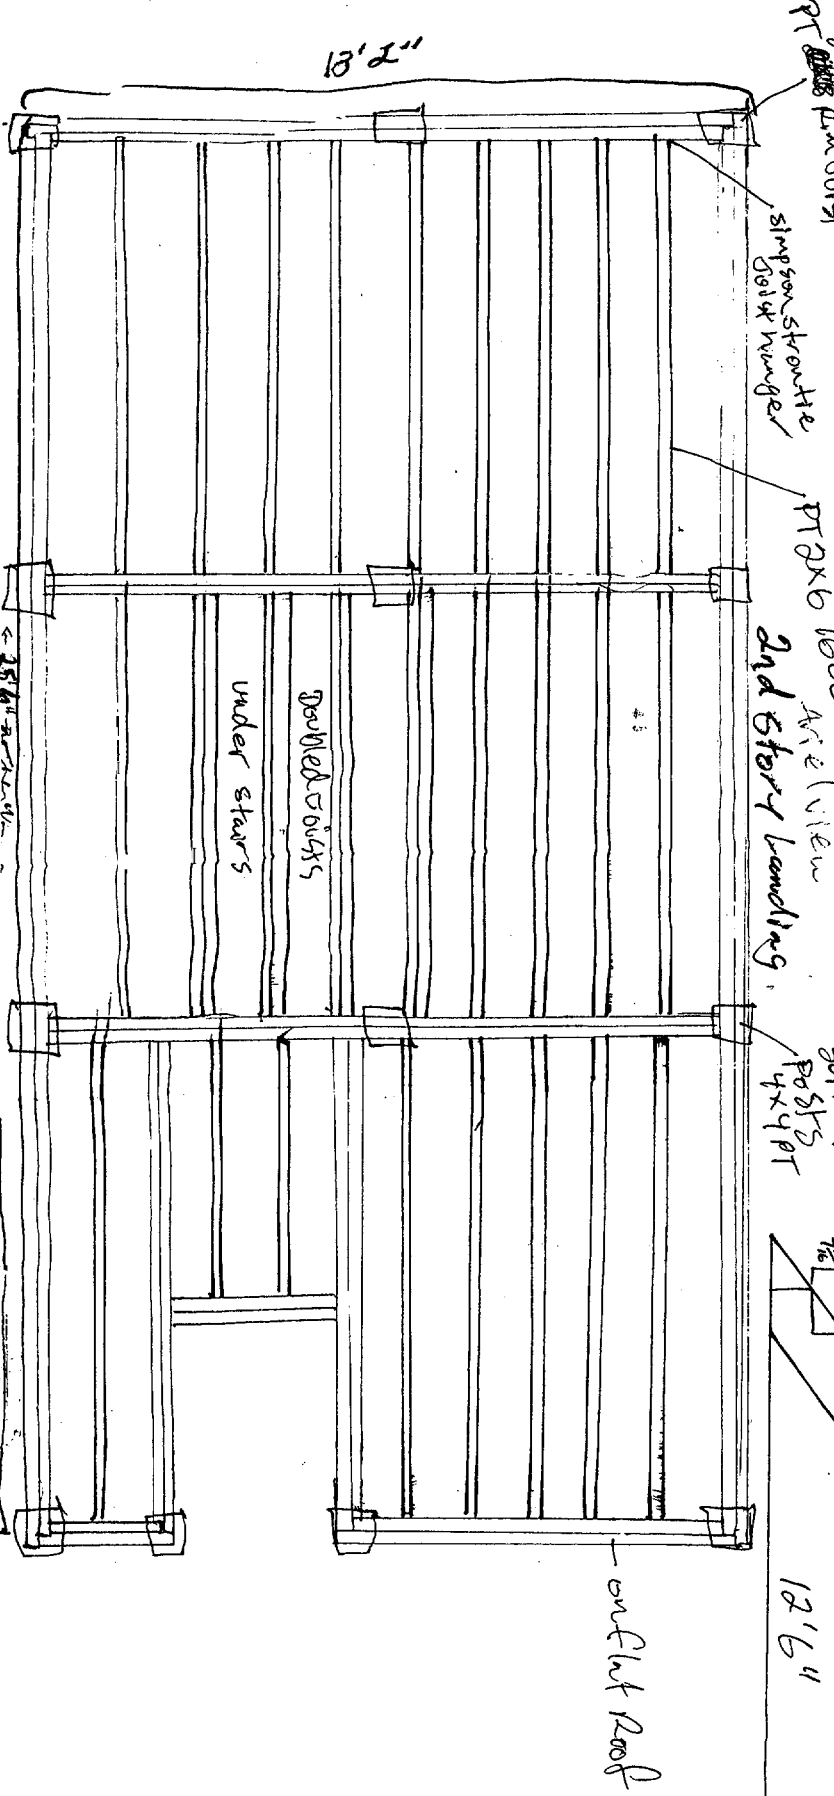 13' 2"
PT
simpson strontie
Joist hunger
PT 2x6
Ariel view
2nd Story Landing.
Posts
4x4 PT
7/16
12'6"
Doubled Joists
under stairs
on flat Roof